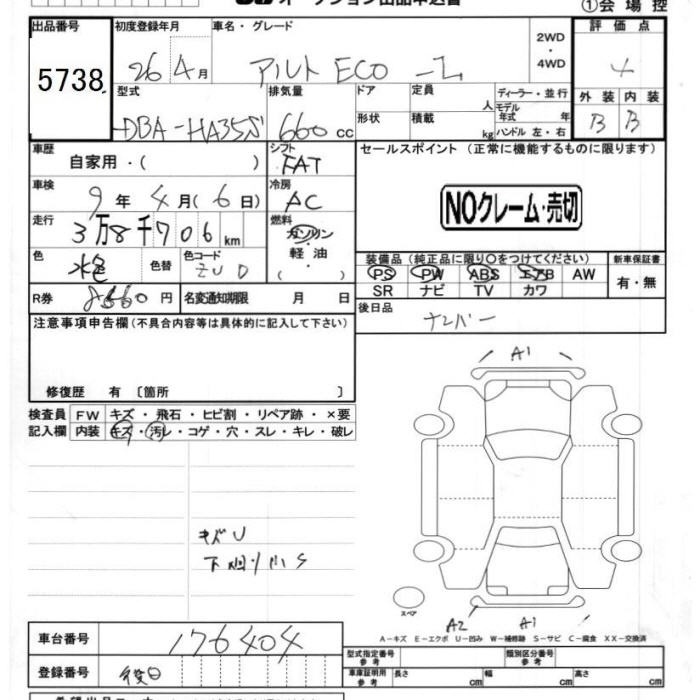 オークション出品申込書
①会場控
出品番号 初度登録年月 車名・グレード 2WD・4WD 評価点
5738 26 4月 アルト ECO-L 4
型式 排気量 ドア 定員 人 ディーラー・並行 外装 内装
DBA-HA35S 660cc 形状 積載 kg モデル年式 年 ハンドル 左・右 B B
車歴 自家用・( ) シフト FAT セールスポイント (正常に機能するものに限ります)
車検 9年4月(6日) 冷房 AC
NOクレーム・売切
走行 3万8千706km 燃料 ガソリン・軽油・( )
色 水色 色替 色コード ZUD
装備品 (純正品に限り○をつけてください) 新車保証書
PS PW ABS エアB AW 有・無
SR ナビ TV カワ
R券 8560円 名変通知期限 月 日
後日品 ナンバー
注意事項申告欄(不具合内容等は具体的に記入して下さい)
修復歴 有 〔箇所 〕
A1
検査員記入欄 FW キズ・飛石・ヒビ割・リペア跡・×要
内装 キズ・汚レ・コゲ・穴・スレ・キレ・破レ
キズU
下回り小S
スペア
A2 A1
A-キズ E-エクボ U-凹み W-補修跡 S-サビ C-腐食 XX-交換済
車台番号 176404
型式指定番号 参考 類別区分番号 参考
登録番号 後日
車庫証明用 参考 長さ cm 幅 cm 高さ cm